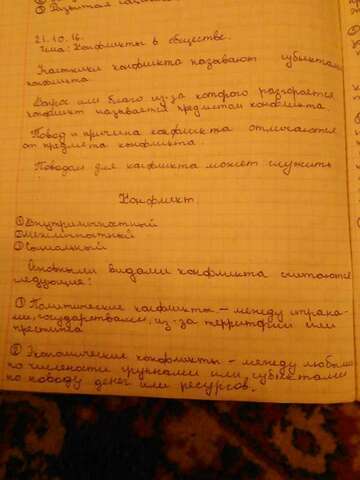 ③ Развитая социаль
21.10.16.
Тема: Конфликты в обществе.
Участники конфликта называют субъектами
конфликта
Вопрос или благо из-за которого разгорается
конфликт называется предметом конфликта.
Повод и причина конфликта отличаются
от предмета конфликта.
Поводом для конфликта может служить
Конфликт.
① Внутриличностный
② Межличностный
③ Социальный
Основными видами конфликта считаются
следующие:
① Политические конфликты – между страна-
ми, государствами, из-за территории или
престижа
② Экономические конфликты – между любыми
по числености группами или субъектами
по поводу денег или ресурсов.